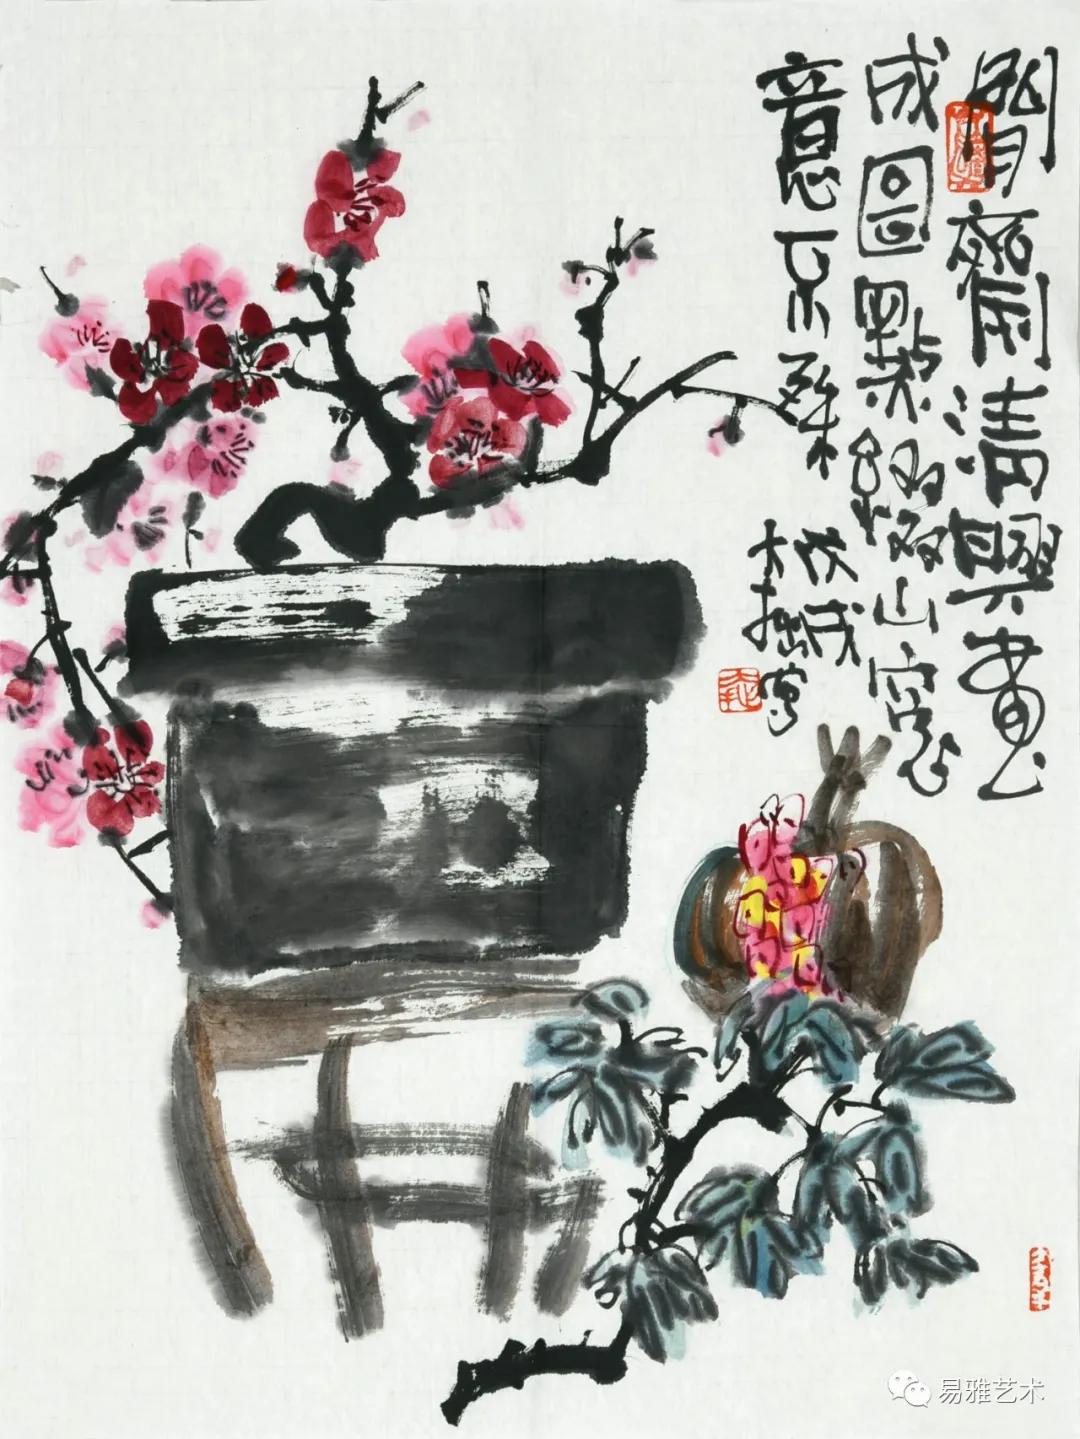 閒齋清興畫
成圖點綴山窗
意不殊
戊戌
大拙寫
易雅艺术